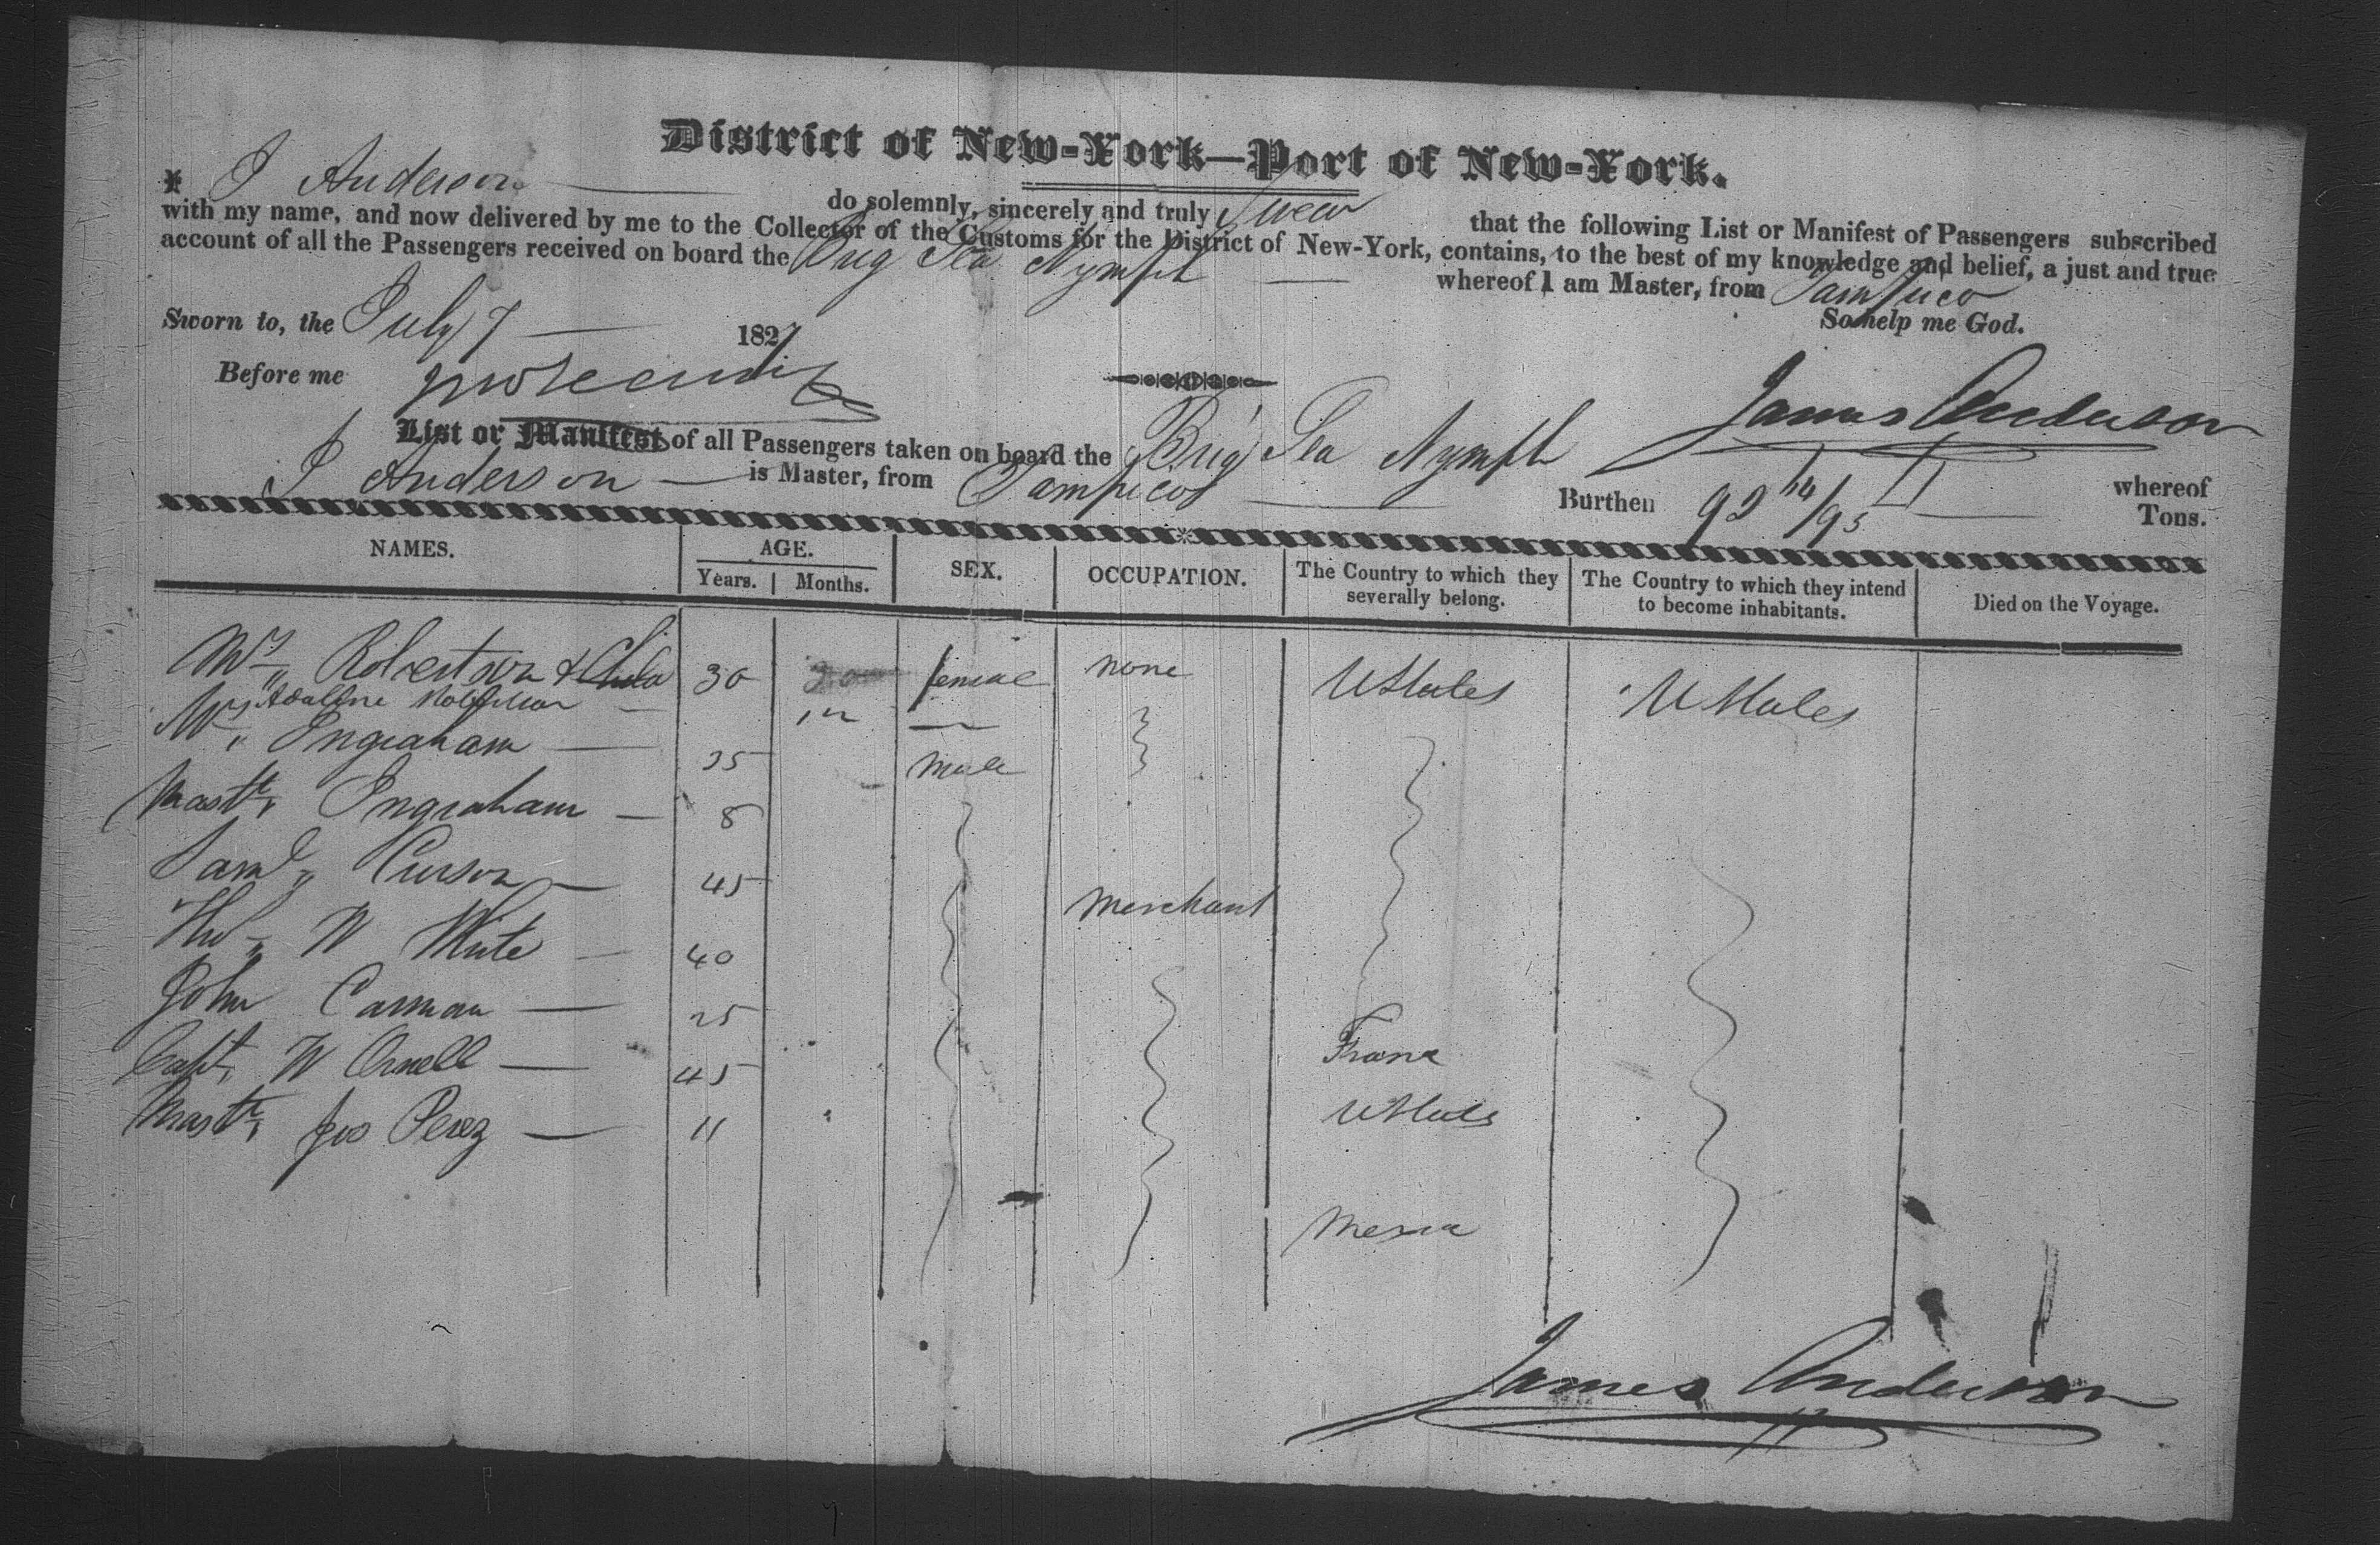 District of New-York—Port of New-York.
I J Anderson do solemnly, sincerely and truly Swear that the following List or Manifest of Passengers subscribed
with my name, and now delivered by me to the Collector of the Customs for the District of New-York, contains, to the best of my knowledge and belief, a just and true
account of all the Passengers received on board the Brig Sea Nymph whereof I am Master, from Tampico
So help me God.
Sworn to, the July 7 1827
Before me
James Anderson
List or Manifest of all Passengers taken on board the Brig Sea Nymph whereof
J Anderson is Master, from Tampico Burthen 92 14/95 Tons.
NAMES. AGE. SEX. OCCUPATION. The Country to which they severally belong. The Country to which they intend to become inhabitants. Died on the Voyage.
Years. Months.
Mrs Robertson & Child 30 female none UStates UStates
Adaline
Mr Ingraham 35 male
Mastr Ingraham 8
Saml Curson 45 merchant
W White 40
John Carman 25 France
Capt W Ornell 45 UStates
Mastr Jos Perez 11 Mexico
James Anderson